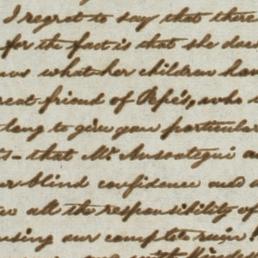 I regret to say that there
for the fact is that she does
what her children have
great friend of Pepe's, who
long to give you particular
that Mr. Ansoategui
blind confidence and
all the responsibility of
our complete ruin!